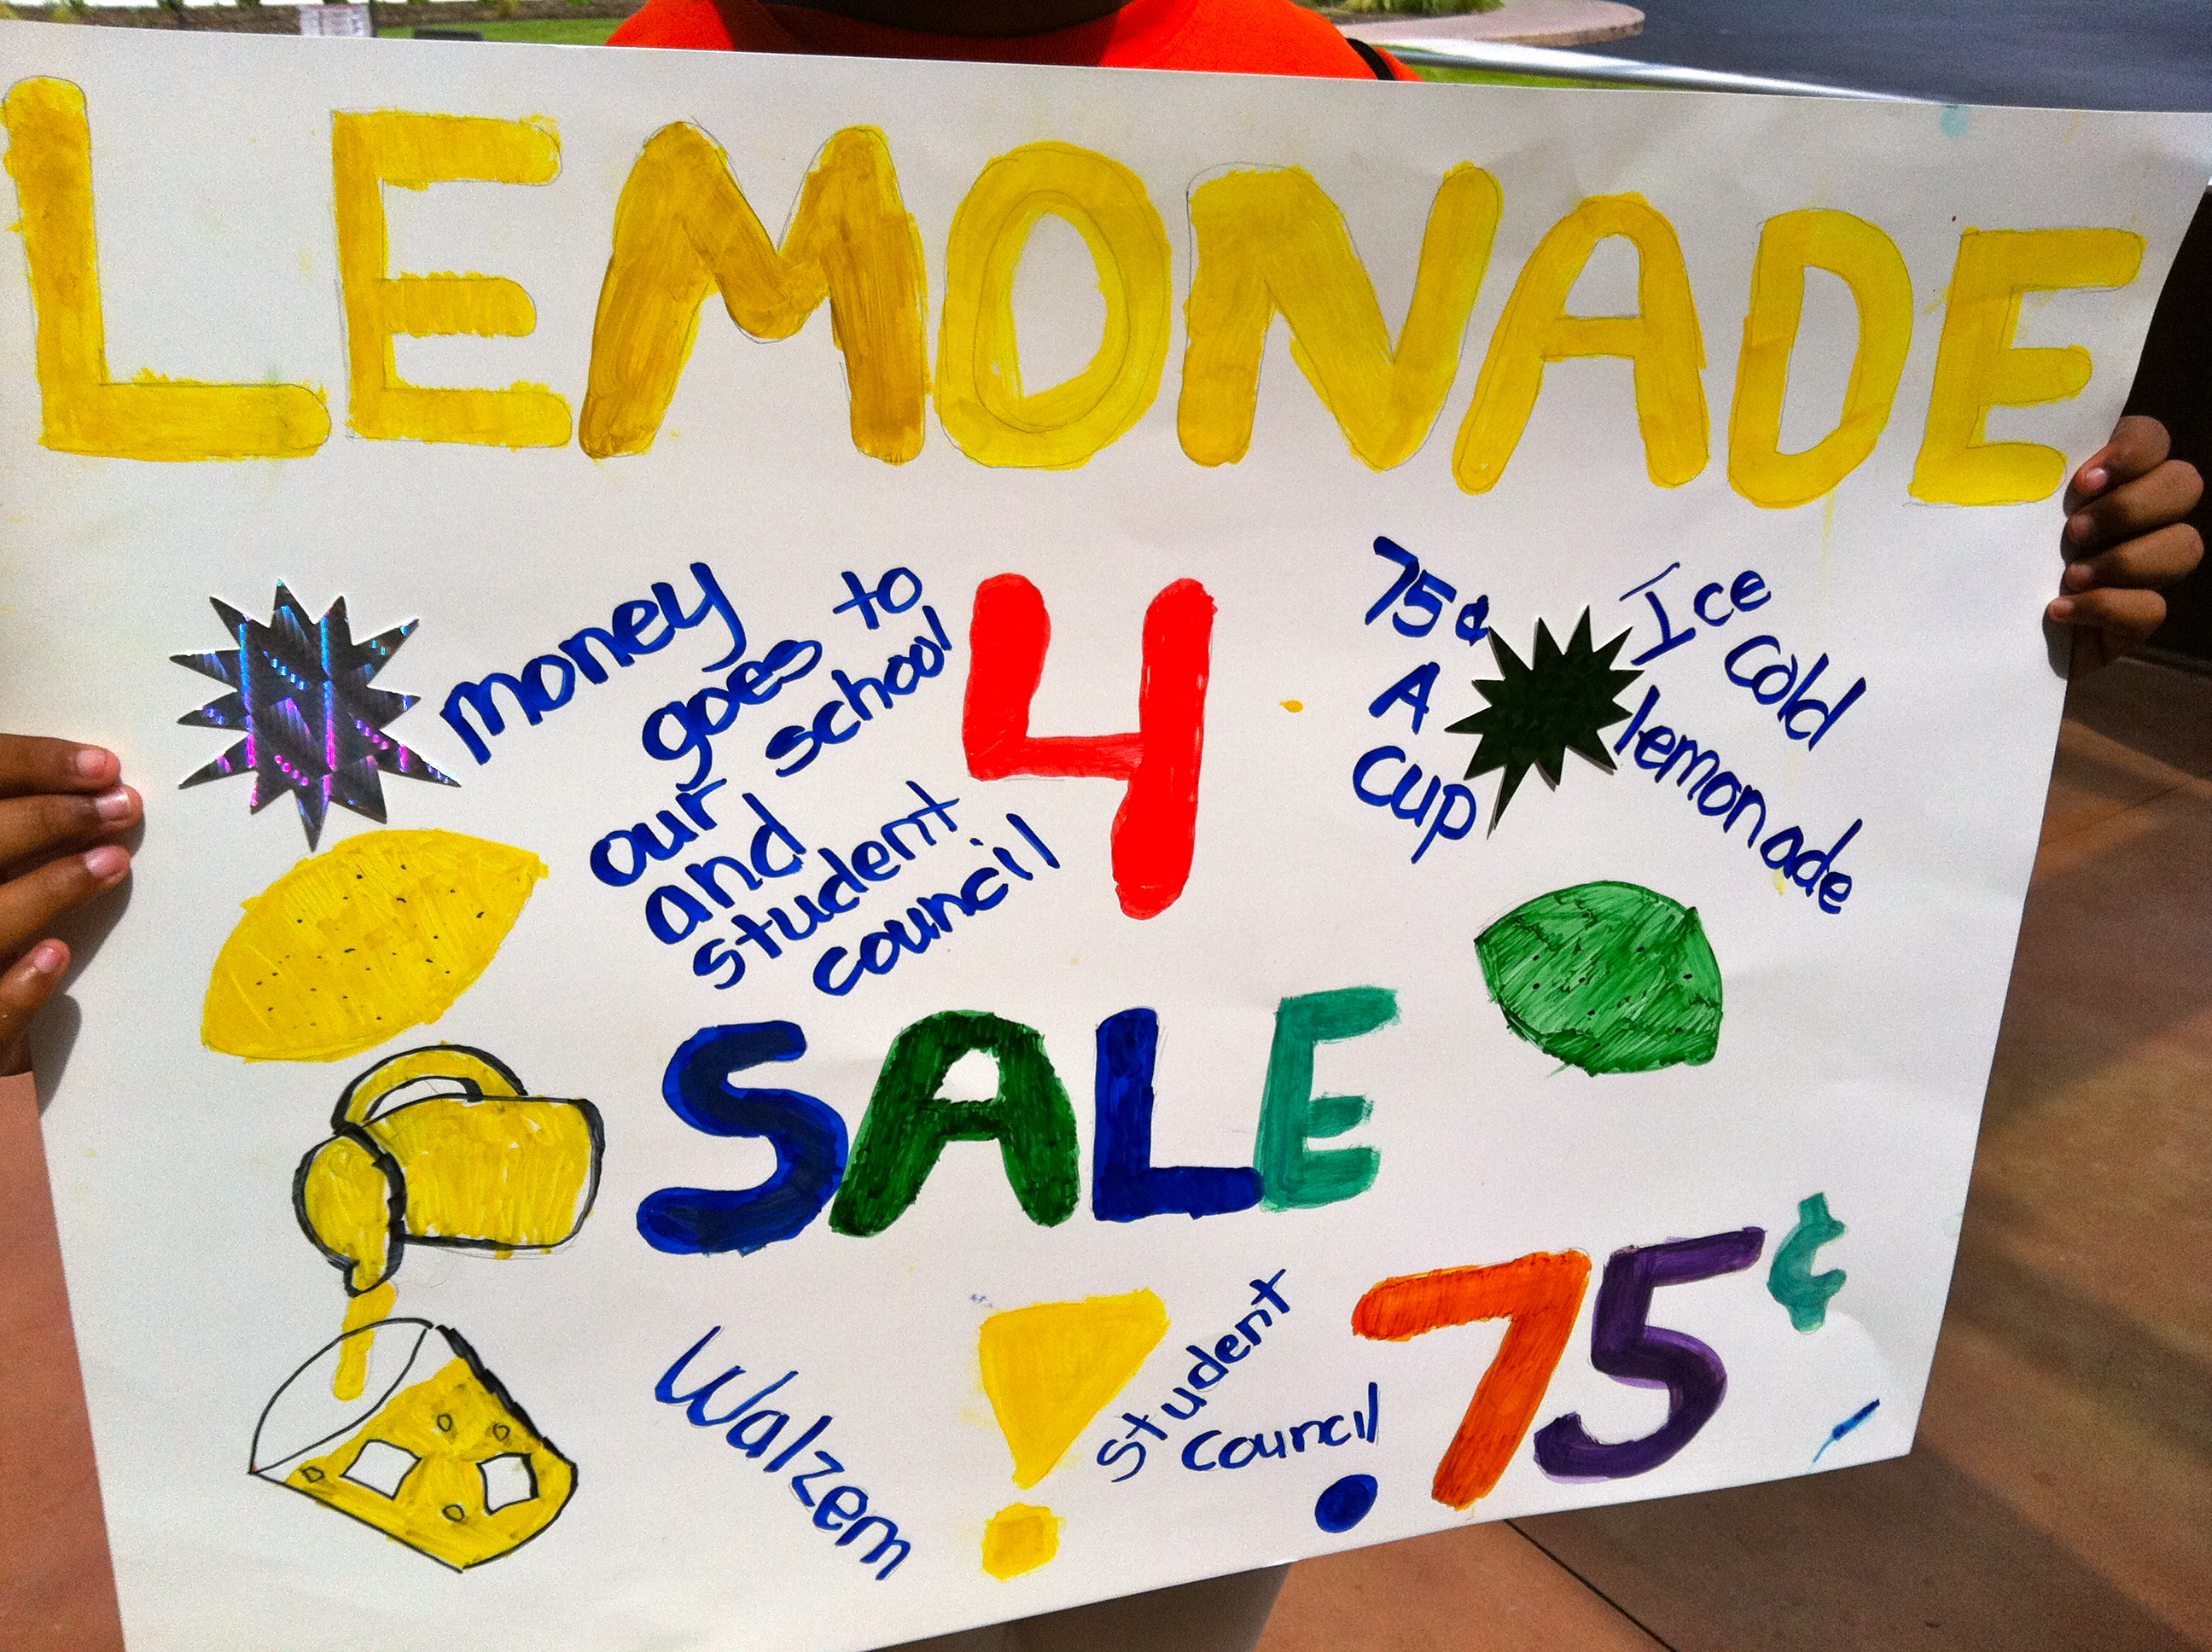 LEMONADE
money
goes to
our school
and
student
council
4
75¢
A
cup
Ice cold
lemonade
SALE
Walzem
!
Student
Council
75¢